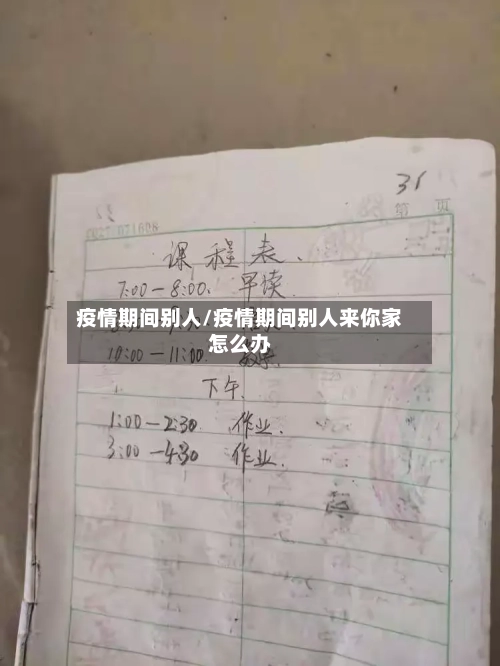 31
第 页
课程表.
7:00-8:00. 早读
疫情期间别人/疫情期间别人来你家
怎么办
10:00-11:00.
下午.
1:00-2:30 作业.
3:00-4:30 作业.